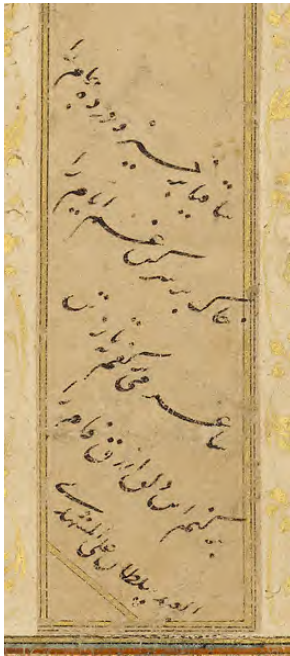 ساقیا برخیز و درده جام را
خاک بر سر کن غم ایام را
ساغر می بر کفم نه تا ز تن
برکشم این دلق ازرق فام را
العبد سلطان علی المشهدی